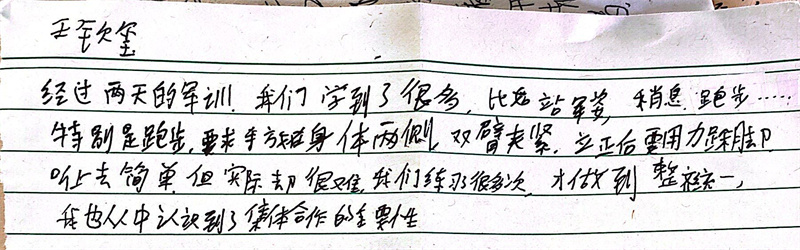 王歆玺
经过两天的军训,我们学到了很多,比如站军姿,稍息,跑步……
特别是跑步,要求手放在身体两侧,双臂夹紧,立正后要用力跺脚,
听上去简单,但实际却很难,我们练习了很多次,才做到整齐统一,
我也从中认识到了集体合作的重要性